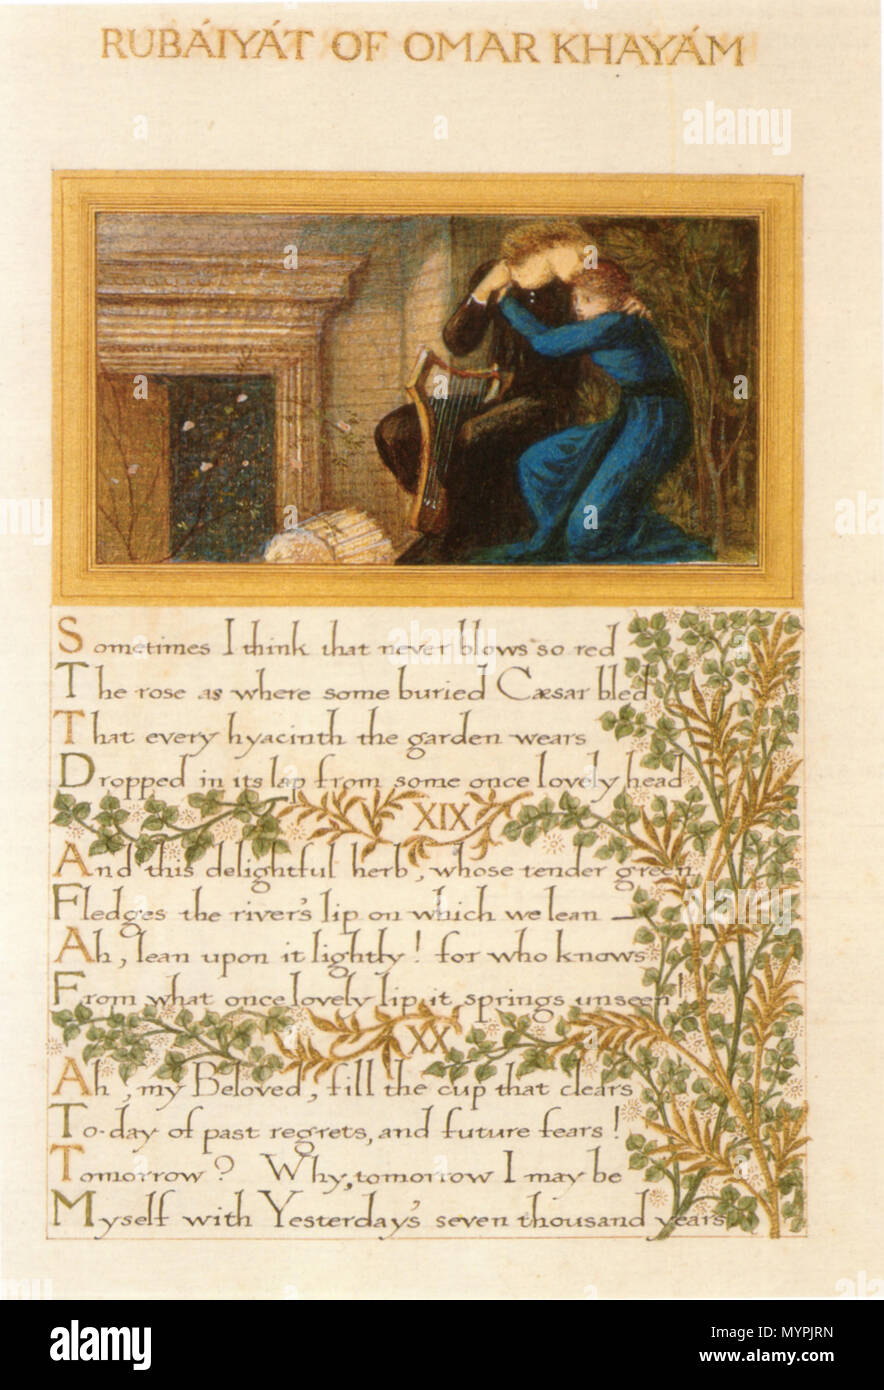 RUBÁIYÁT OF OMAR KHAYÁM
Sometimes I think that never blows so red
The rose as where some buried Cæsar bled
That every hyacinth the garden wears
Dropped in its lap from some once lovely head
XIX
And this delightful herb, whose tender green
Fledges the river's lip on which we lean —
Ah, lean upon it lightly! for who knows
From what once lovely lip it springs unseen!
XX
Ah, my Beloved, fill the cup that clears
To-day of past regrets, and future fears!
Tomorrow? Why, tomorrow I may be
Myself with Yesterday's seven thousand years
alamy
alamy
Image ID: MYPJRN
www.alamy.com